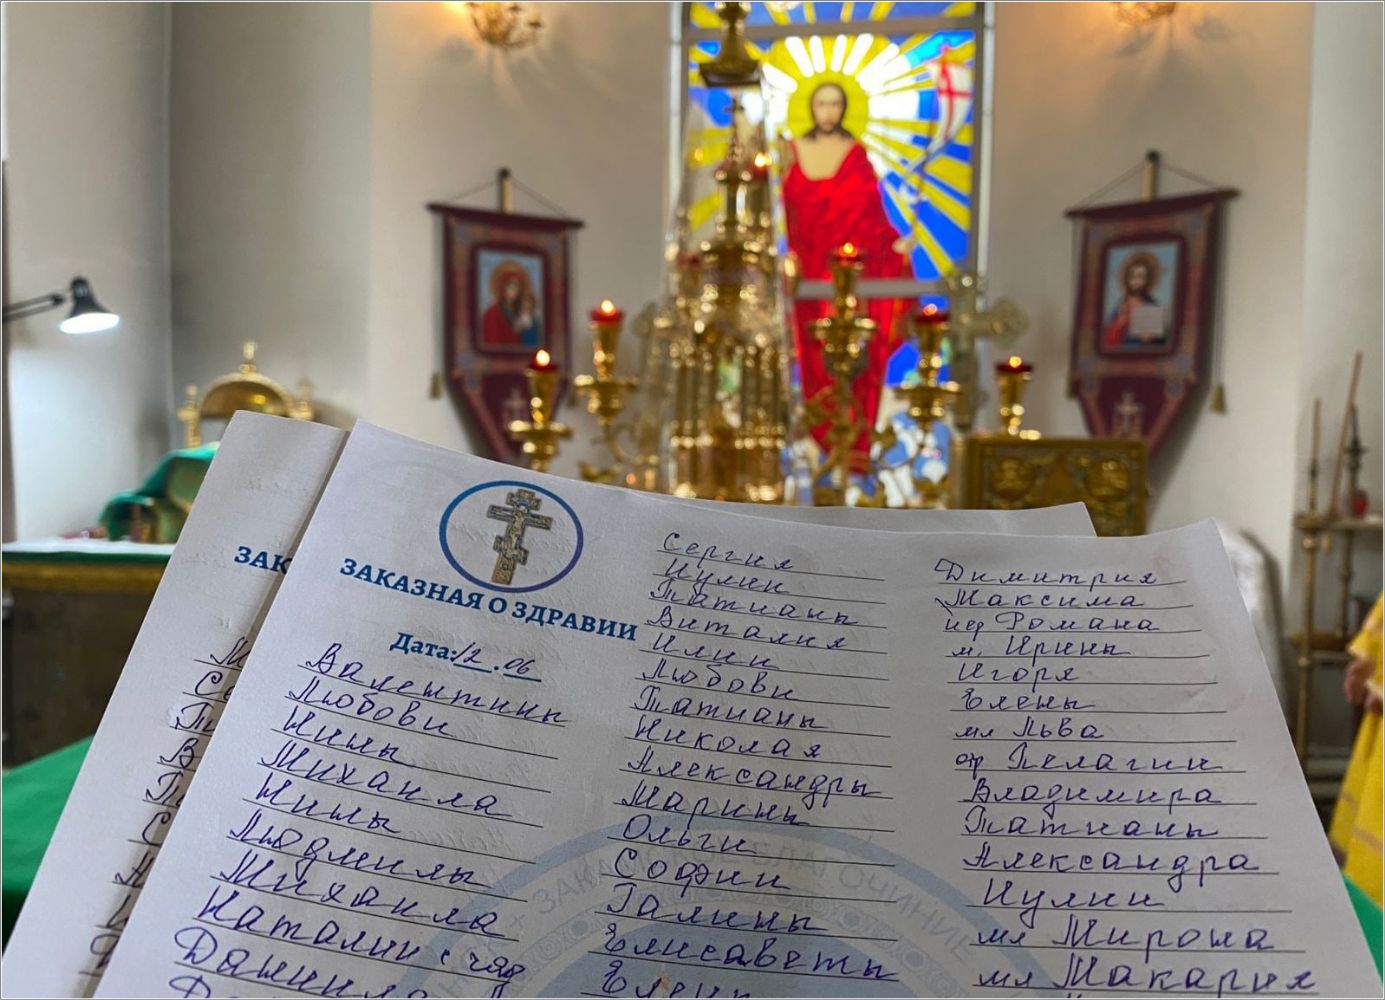 ЗАК
ЗАКАЗНАЯ О ЗДРАВИИ
Дата: 12.06
Валентины
Любови
Нины
Михаила
Нины
Людмилы
Михаила
Наталии с чад
Даниила
Сергия
Иулии
Татианы
Виталия
Илии
Любови
Татианы
Николая
Александры
Марины
Ольги
Софии
Галины
Елисаветы
Елены
Димитрия
Максима
иер Романа
м. Ирины
Игоря
Елены
мл Льва
отр Пелагии
Владимира
Татианы
Александра
Иулии
мл Мирона
мл Макария